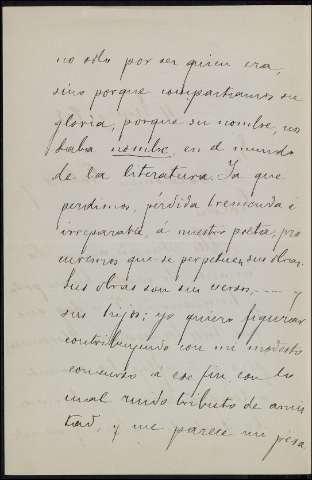 no sólo por ser quien era,
sino porque compartíamos su
gloria, porque su nombre, nos
daba nombre en el mundo
de la literatura. Ya que
perdimos, pérdida tremenda é
irreparable, á nuestro poeta, pro
curemos que se perpetuen sus obras.
Sus obras son sus versos, .... y
sus hijos; yo quiero figurar
contribuyendo con mi modesto
concurso á ese fin, con lo
cual rindo tributo de amis
tad, y me parece un pesa